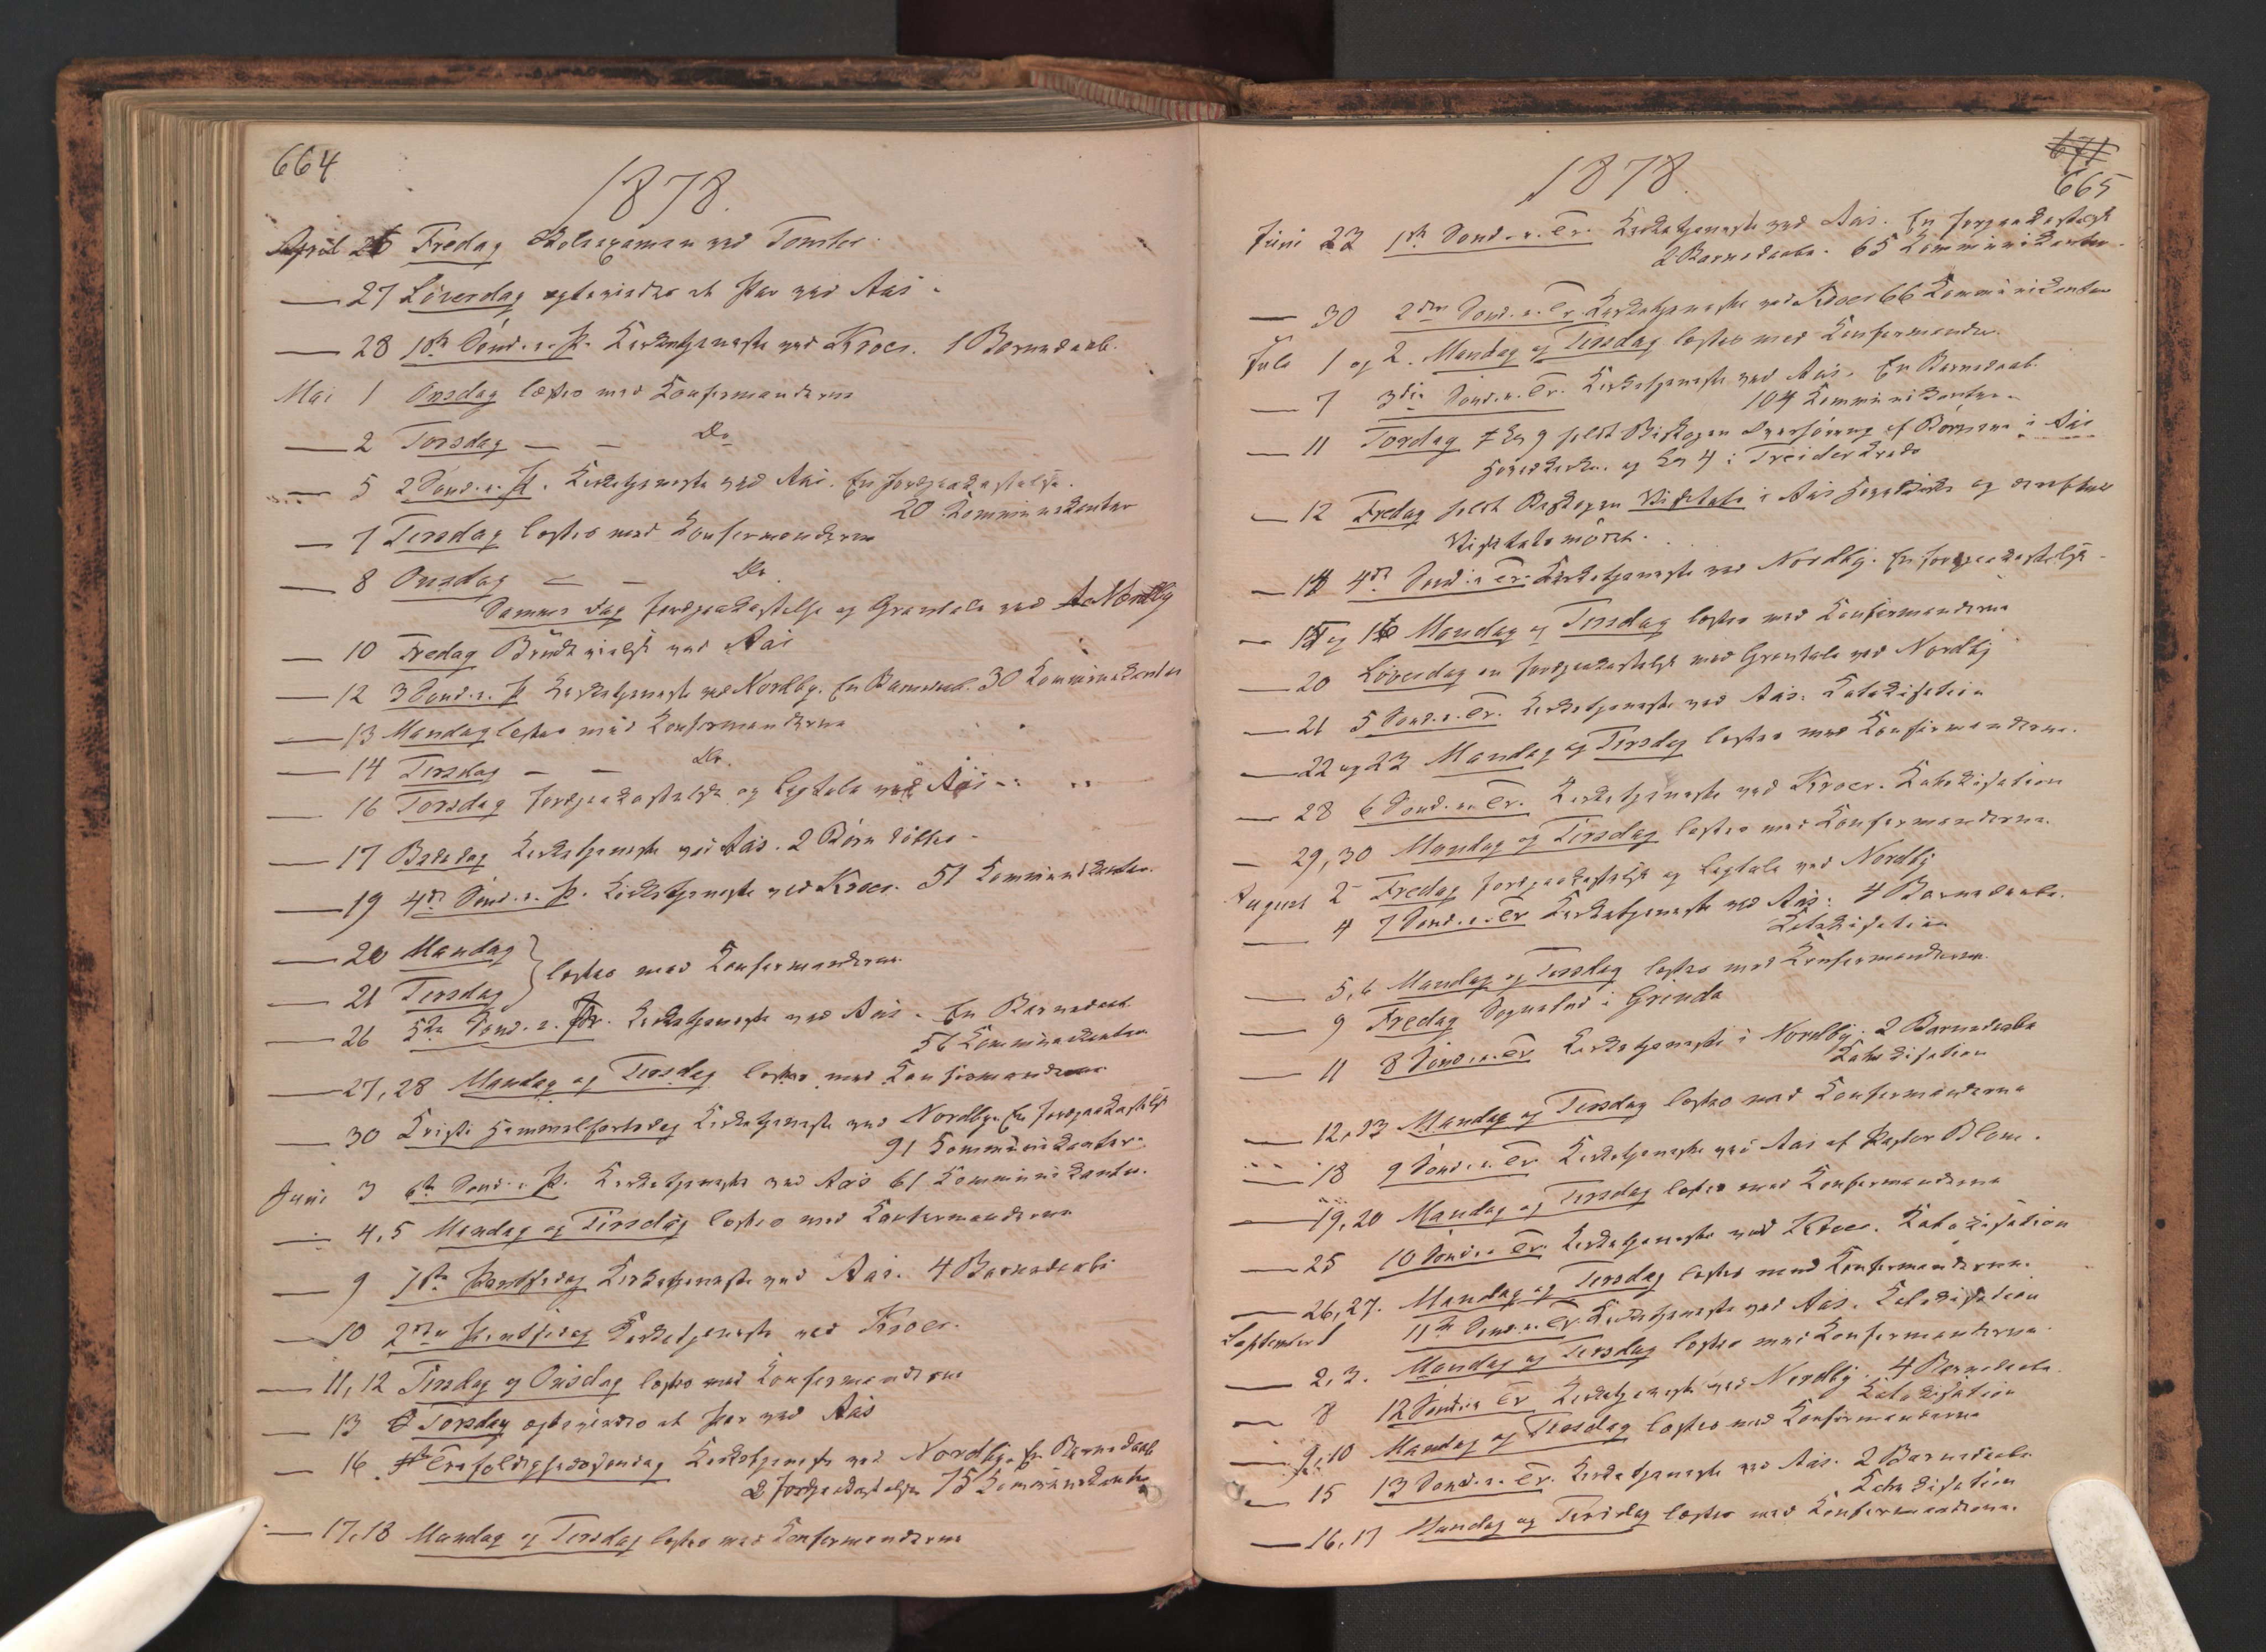 664
1878.
April 26 Fredag Skoleexamen ved Tomter
— 27 Löverdag egteviedes et Par ved Aas.
— 28 1ste Sönd. e. P. Kirketjeneste ved Kroer. 1 Barnedaab.
Mai 1 Onsdag læstes med Konfirmanderne
— 2 Torsdag — — Do
— 5 2 Sönd. e. P. Kirketjeneste ved Aas. En Jordpaakastelse.
20 Kommunikanter
— 7 Tirsdag læstes med Konfirmanderne
— 8 Onsdag — — Do.
Samme Dag Jordpaakastelse og Gravtale ved Nordby
— 10 Fredag Brudevielse ved Aas
— 12 3 Sönd. e. P. Kirketjeneste ved Nordby. En Barnedaab. 30 Kommunikanter
— 13 Mandag læstes med Konfirmanderne
— 14 Tirsdag — — Do.
— 16 Torsdag Jordpaakastelse og Ligtale ved Aas
— 17 Bededag Kirketjeneste ved Aas. 2 Börn döbtes.
— 19 4de Sönd. e. P. Kirketjeneste ved Kroer. 51 Kommunikanter.
— 20 Mandag
} læstes med Konfirmanderne
— 21 Tirsdag
— 26 5te Sönd. e. P. Kirketjeneste ved Aas. En Barnedaab
56 Kommunikanter
— 27, 28 Mandag og Tirsdag læstes med Konfirmanderne
— 30 Kristi Himmelfartsdag Kirketjeneste ved Nordby. En Jordpaakastelse
91 Kommunikanter.
Juni 3 6te Sönd. e. P. Kirketjeneste ved Aas 61 Kommunikanter.
— 4, 5 Mandag og Tirsdag læstes med Konfirmanderne
— 9 1ste Pentsedag Kirketjeneste ved Aas. 4 Barnedaabe
— 10 2den Pentsedag Kirketjeneste ved Kroer.
— 11, 12 Tirsdag og Onsdag læstes med Konfirmanderne
— 13 Torsdag egteviedes et Par ved Aas
— 16 Trefoldighedssöndag Kirketjeneste ved Nordby. En Barnedaab
2 Jordpaakastelser 75 Kommunikanter
— 17, 18 Mandag og Tirsdag læstes med Konfirmanderne
671
665
1878.
Juni 23 1ste Sönd. e. Tr. Kirketjeneste ved Aas. En Jordpaakastelse
2 Barnedaabe. 65 Kommunikanter.
— 30 2den Sönd. e. Tr. Kirketjeneste ved Kroer 66 Kommunikanter
Juli 1 og 2. Mandag og Tirsdag læstes med Konfirmander.
— 7 3die Sönd. e. Tr. Kirketjeneste ved Aas. En Barnedaab.
104 Kommunikanter.
— 11 Torsdag Kl 9 holdt Biskopen Overhöring af Börnene i Aas
Hovedkirke og Kl 4 i Treider Kreds
— 12 Fredag holdt Biskopen Visitats i Aas Hovedkirke og derefter
Visitatsmöde.
— 14 4de Sönd. e. Tr. Kirketjeneste ved Nordby. En Jordpaakastelse.
— 15 og 16 Mandag og Tirsdag læstes med Konfirmanderne
— 20 Löverdag en Jordpaakastelse med Gravtale ved Nordby
— 21 5 Sönd. e. Tr. Kirketjeneste ved Aas. Katekisation
— 22 og 23 Mandag og Tirsdag læstes med Konfirmanderne.
— 28 6 Sönd. e. Tr. Kirketjeneste ved Kroer. Katekisation
— 29, 30 Mandag og Tirsdag læstes med Konfirmanderne.
August 2 Fredag Jordpaakastelse og Ligtale ved Nordby
— 4 7 Sönd. e. Tr Kirketjeneste ved Aas. 4 Barnedaabe.
Katekisation
— 5, 6 Mandag og Tirsdag læstes med Konfirmanderne.
— 9 Fredag Sognebud i Grinda
— 11 8 Sönd. e. Tr Kirketjeneste i Nordby. 2 Barnedaabe
Katekisation
— 12, 13 Mandag og Tirsdag læstes med Konfirmanderne
— 18 9 Sönd. e. Tr. Kirketjeneste ved Aas af Pastor Blom.
— 19, 20 Mandag og Tirsdag læstes med Konfirmanderne
— 25 10 Sönd. e. Tr. Kirketjeneste ved Kroer. Katekisation
— 26, 27. Mandag og Tirsdag læstes med Konfirmanderne.
September 1 11te Sönd. e. Tr. Kirketjeneste ved Aas. Katekisation
— 2, 3. Mandag og Tirsdag læstes med Konfirmanderne
— 8 12 Sönd. e. Tr Kirketjeneste ved Nordby. 4 Barnedaabe.
Katekisation
— 9, 10 Mandag og Tirsdag læstes med Konfirmanderne
— 15 13 Sönd. e. Tr. Kirketjeneste ved Aas. 2 Barnedaabe
Katekisation
— 16, 17 Mandag og Tirsdag læstes med Konfirmanderne.